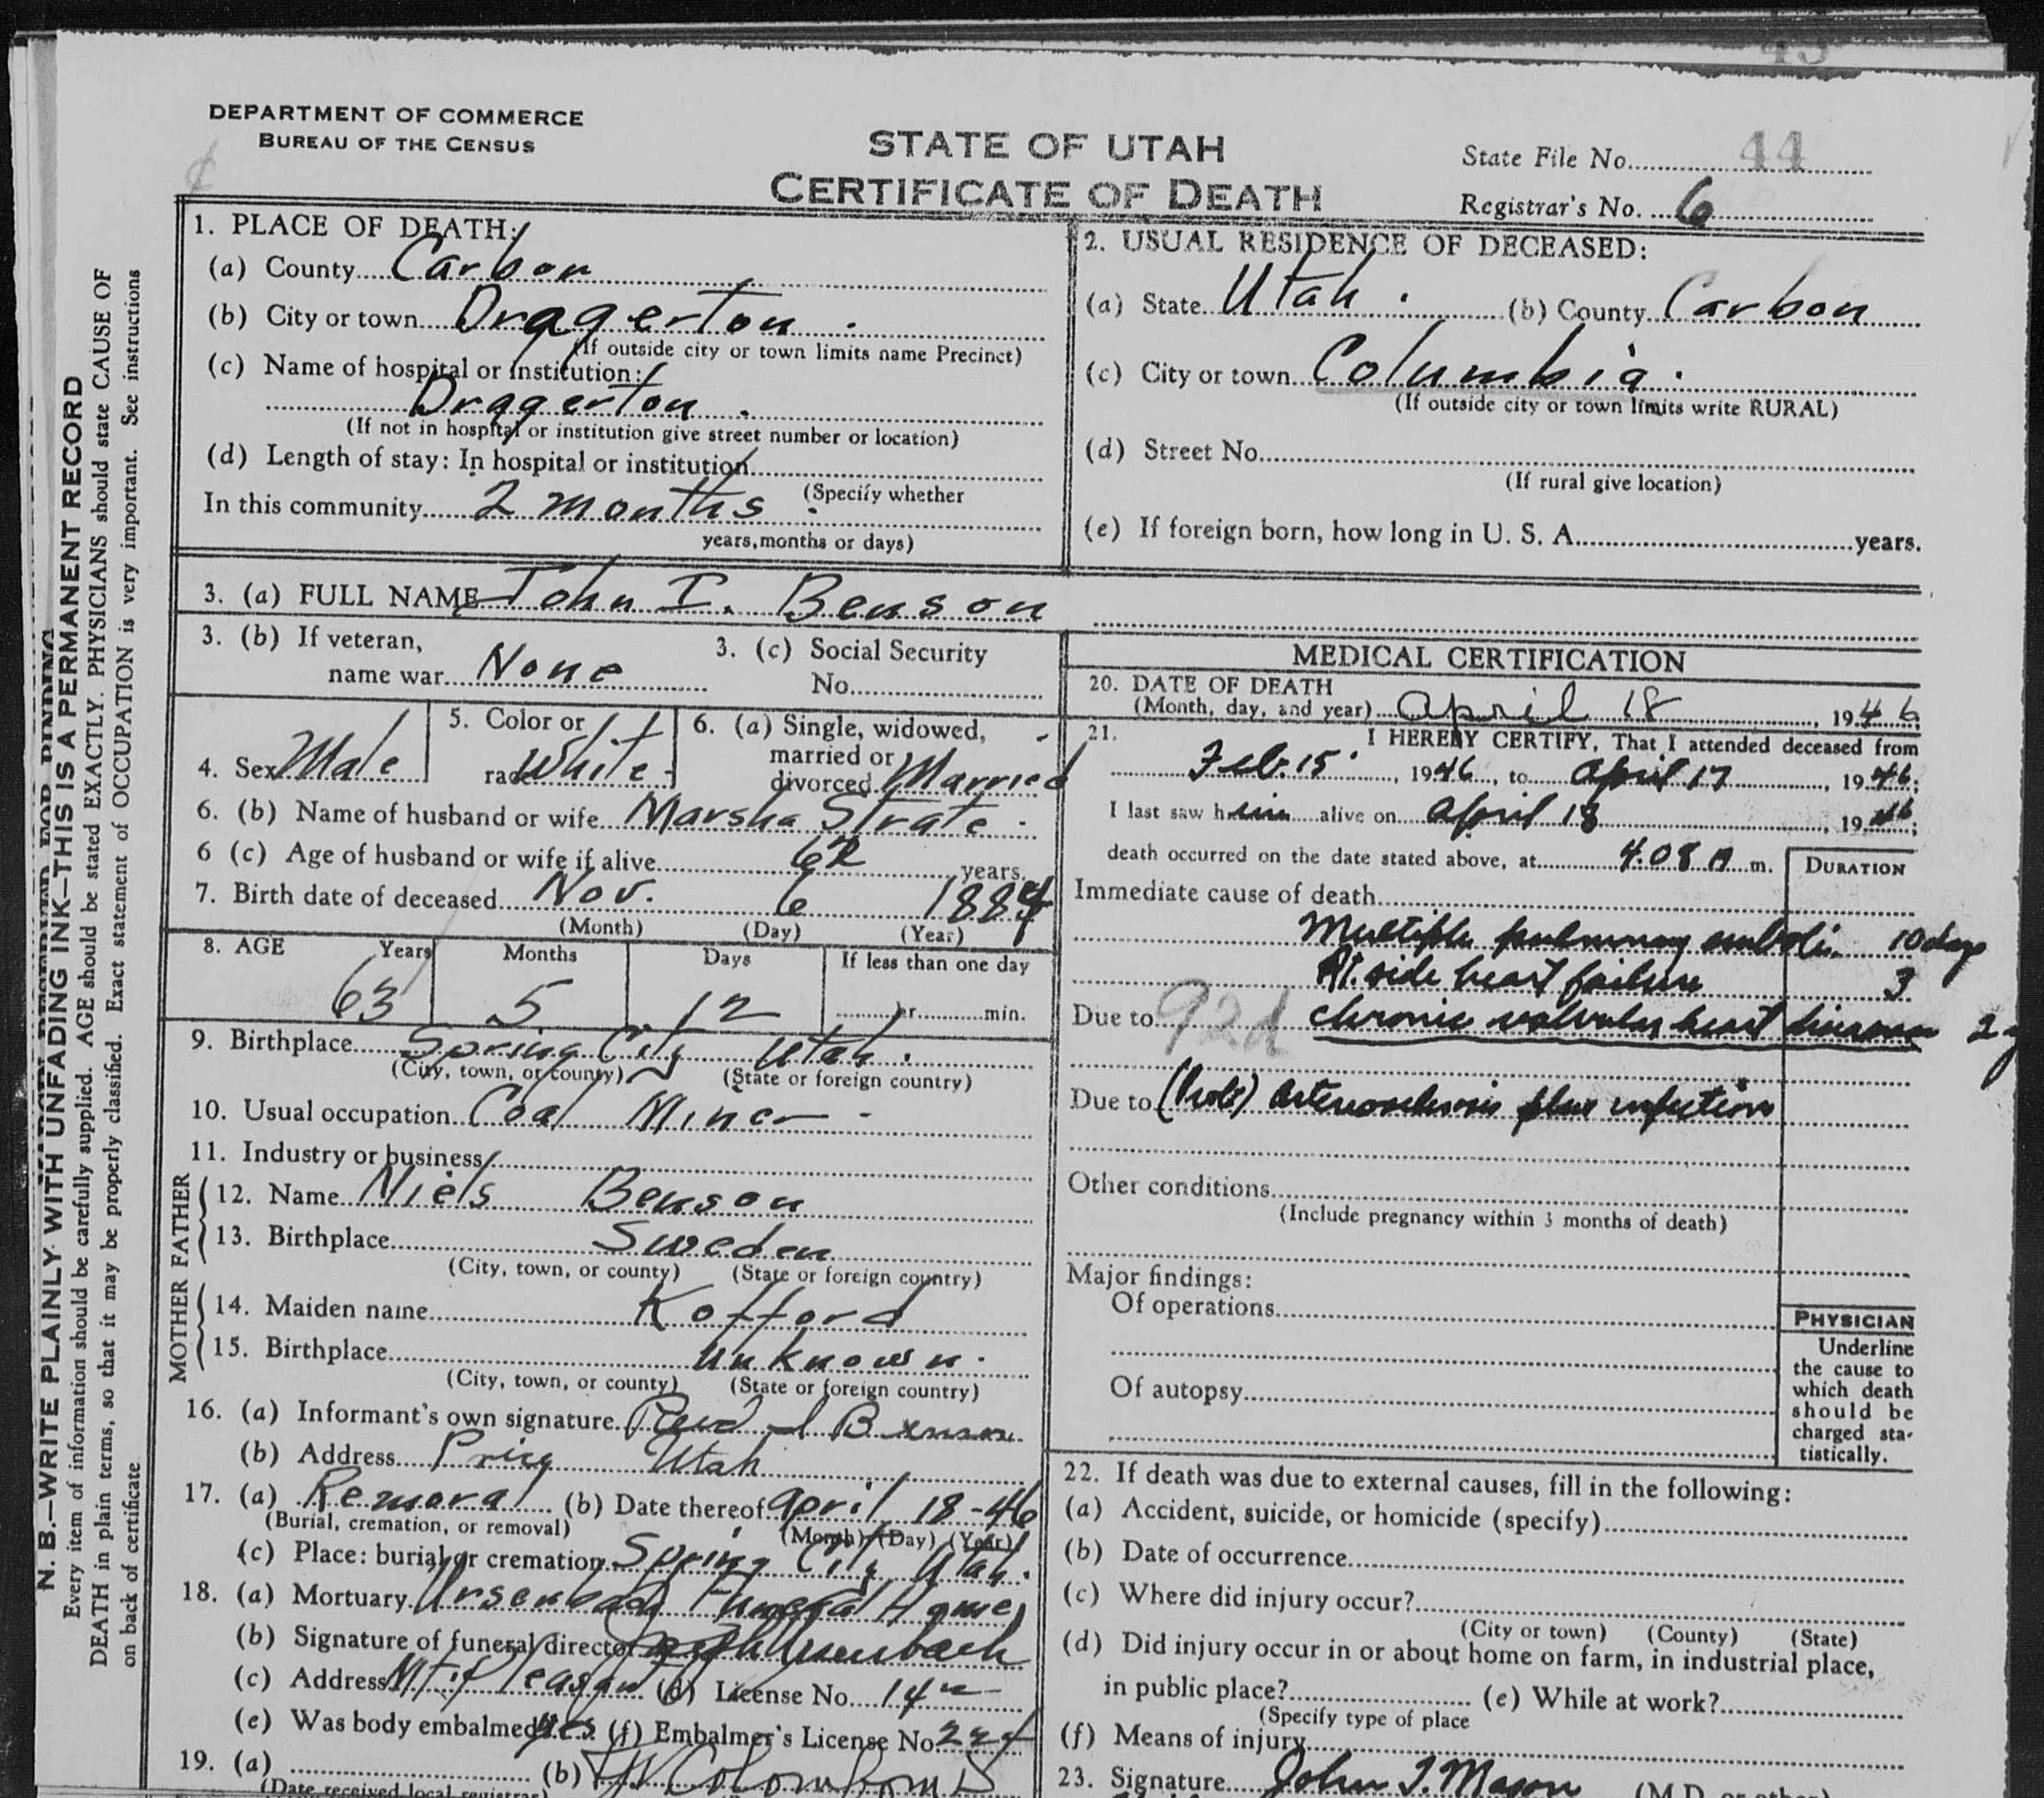 DEPARTMENT OF COMMERCE
BUREAU OF THE CENSUS
STATE OF UTAH
CERTIFICATE OF DEATH
State File No. 44
Registrar's No. 6
N. B.—WRITE PLAINLY WITH UNFADING INK—THIS IS A PERMANENT RECORD
Every item of information should be carefully supplied. AGE should be stated EXACTLY. PHYSICIANS should state CAUSE OF
DEATH in plain terms, so that it may be properly classified. Exact statement of OCCUPATION is very important. See instructions
on back of certificate
1. PLACE OF DEATH:
(a) County Carbon
(b) City or town Dragerton.
(If outside city or town limits name Precinct)
(c) Name of hospital or institution:
Dragerton.
(If not in hospital or institution give street number or location)
(d) Length of stay: In hospital or institution
(Specify whether
In this community 2 months.
years, months or days)
2. USUAL RESIDENCE OF DECEASED:
(a) State Utah. (b) County Carbon
(c) City or town Columbia.
(If outside city or town limits write RURAL)
(d) Street No.
(If rural give location)
(e) If foreign born, how long in U. S. A. years.
3. (a) FULL NAME John I. Benson
3. (b) If veteran,
name war None
3. (c) Social Security
No.
4. Sex Male
5. Color or
race White
6. (a) Single, widowed,
married or
divorced Married
6. (b) Name of husband or wife Marsha Strate
6 (c) Age of husband or wife if alive 62 years.
7. Birth date of deceased Nov. 6 1884
(Month) (Day) (Year)
8. AGE Years Months Days If less than one day
63 5 12 hr. min.
9. Birthplace Spring City Utah.
(City, town, or county) (State or foreign country)
10. Usual occupation Coal Miner
11. Industry or business
FATHER
12. Name Niels Benson
13. Birthplace Sweden
(City, town, or county) (State or foreign country)
MOTHER
14. Maiden name Kofford
15. Birthplace Unknown.
(City, town, or county) (State or foreign country)
16. (a) Informant's own signature Benson
(b) Address Price Utah
17. (a) Removal (b) Date thereof April 18-46
(Burial, cremation, or removal) (Month) (Day) (Year)
(c) Place: burial or cremation Spring City Utah.
18. (a) Mortuary Ursenbach Funeral Home
(b) Signature of funeral director Ursenbach
(c) Address Mt Pleasant (d) License No. 14
(e) Was body embalmed yes (f) Embalmer's License No.
19. (a) (b)
(Date received local registrar)
MEDICAL CERTIFICATION
20. DATE OF DEATH
(Month, day, and year) April 18, 1946
21. I HEREBY CERTIFY, That I attended deceased from
Feb. 15, 1946, to April 17, 1946;
I last saw him alive on April 18, 1946;
death occurred on the date stated above, at 4:08 m.
DURATION
Immediate cause of death
Multiple pulmonary emboli. 10 days
Rt. side heart failure 3
Due to 92d chronic valvular heart disease 2 y
Due to (Prob) arteriosclerosis plus infection
Other conditions
(Include pregnancy within 3 months of death)
Major findings:
Of operations
Of autopsy
PHYSICIAN
Underline
the cause to
which death
should be
charged sta-
tistically.
22. If death was due to external causes, fill in the following:
(a) Accident, suicide, or homicide (specify)
(b) Date of occurrence
(c) Where did injury occur?
(City or town) (County) (State)
(d) Did injury occur in or about home on farm, in industrial place,
in public place? (e) While at work?
(Specify type of place
(f) Means of injury
23. Signature John I. Mason (M.D. or other)